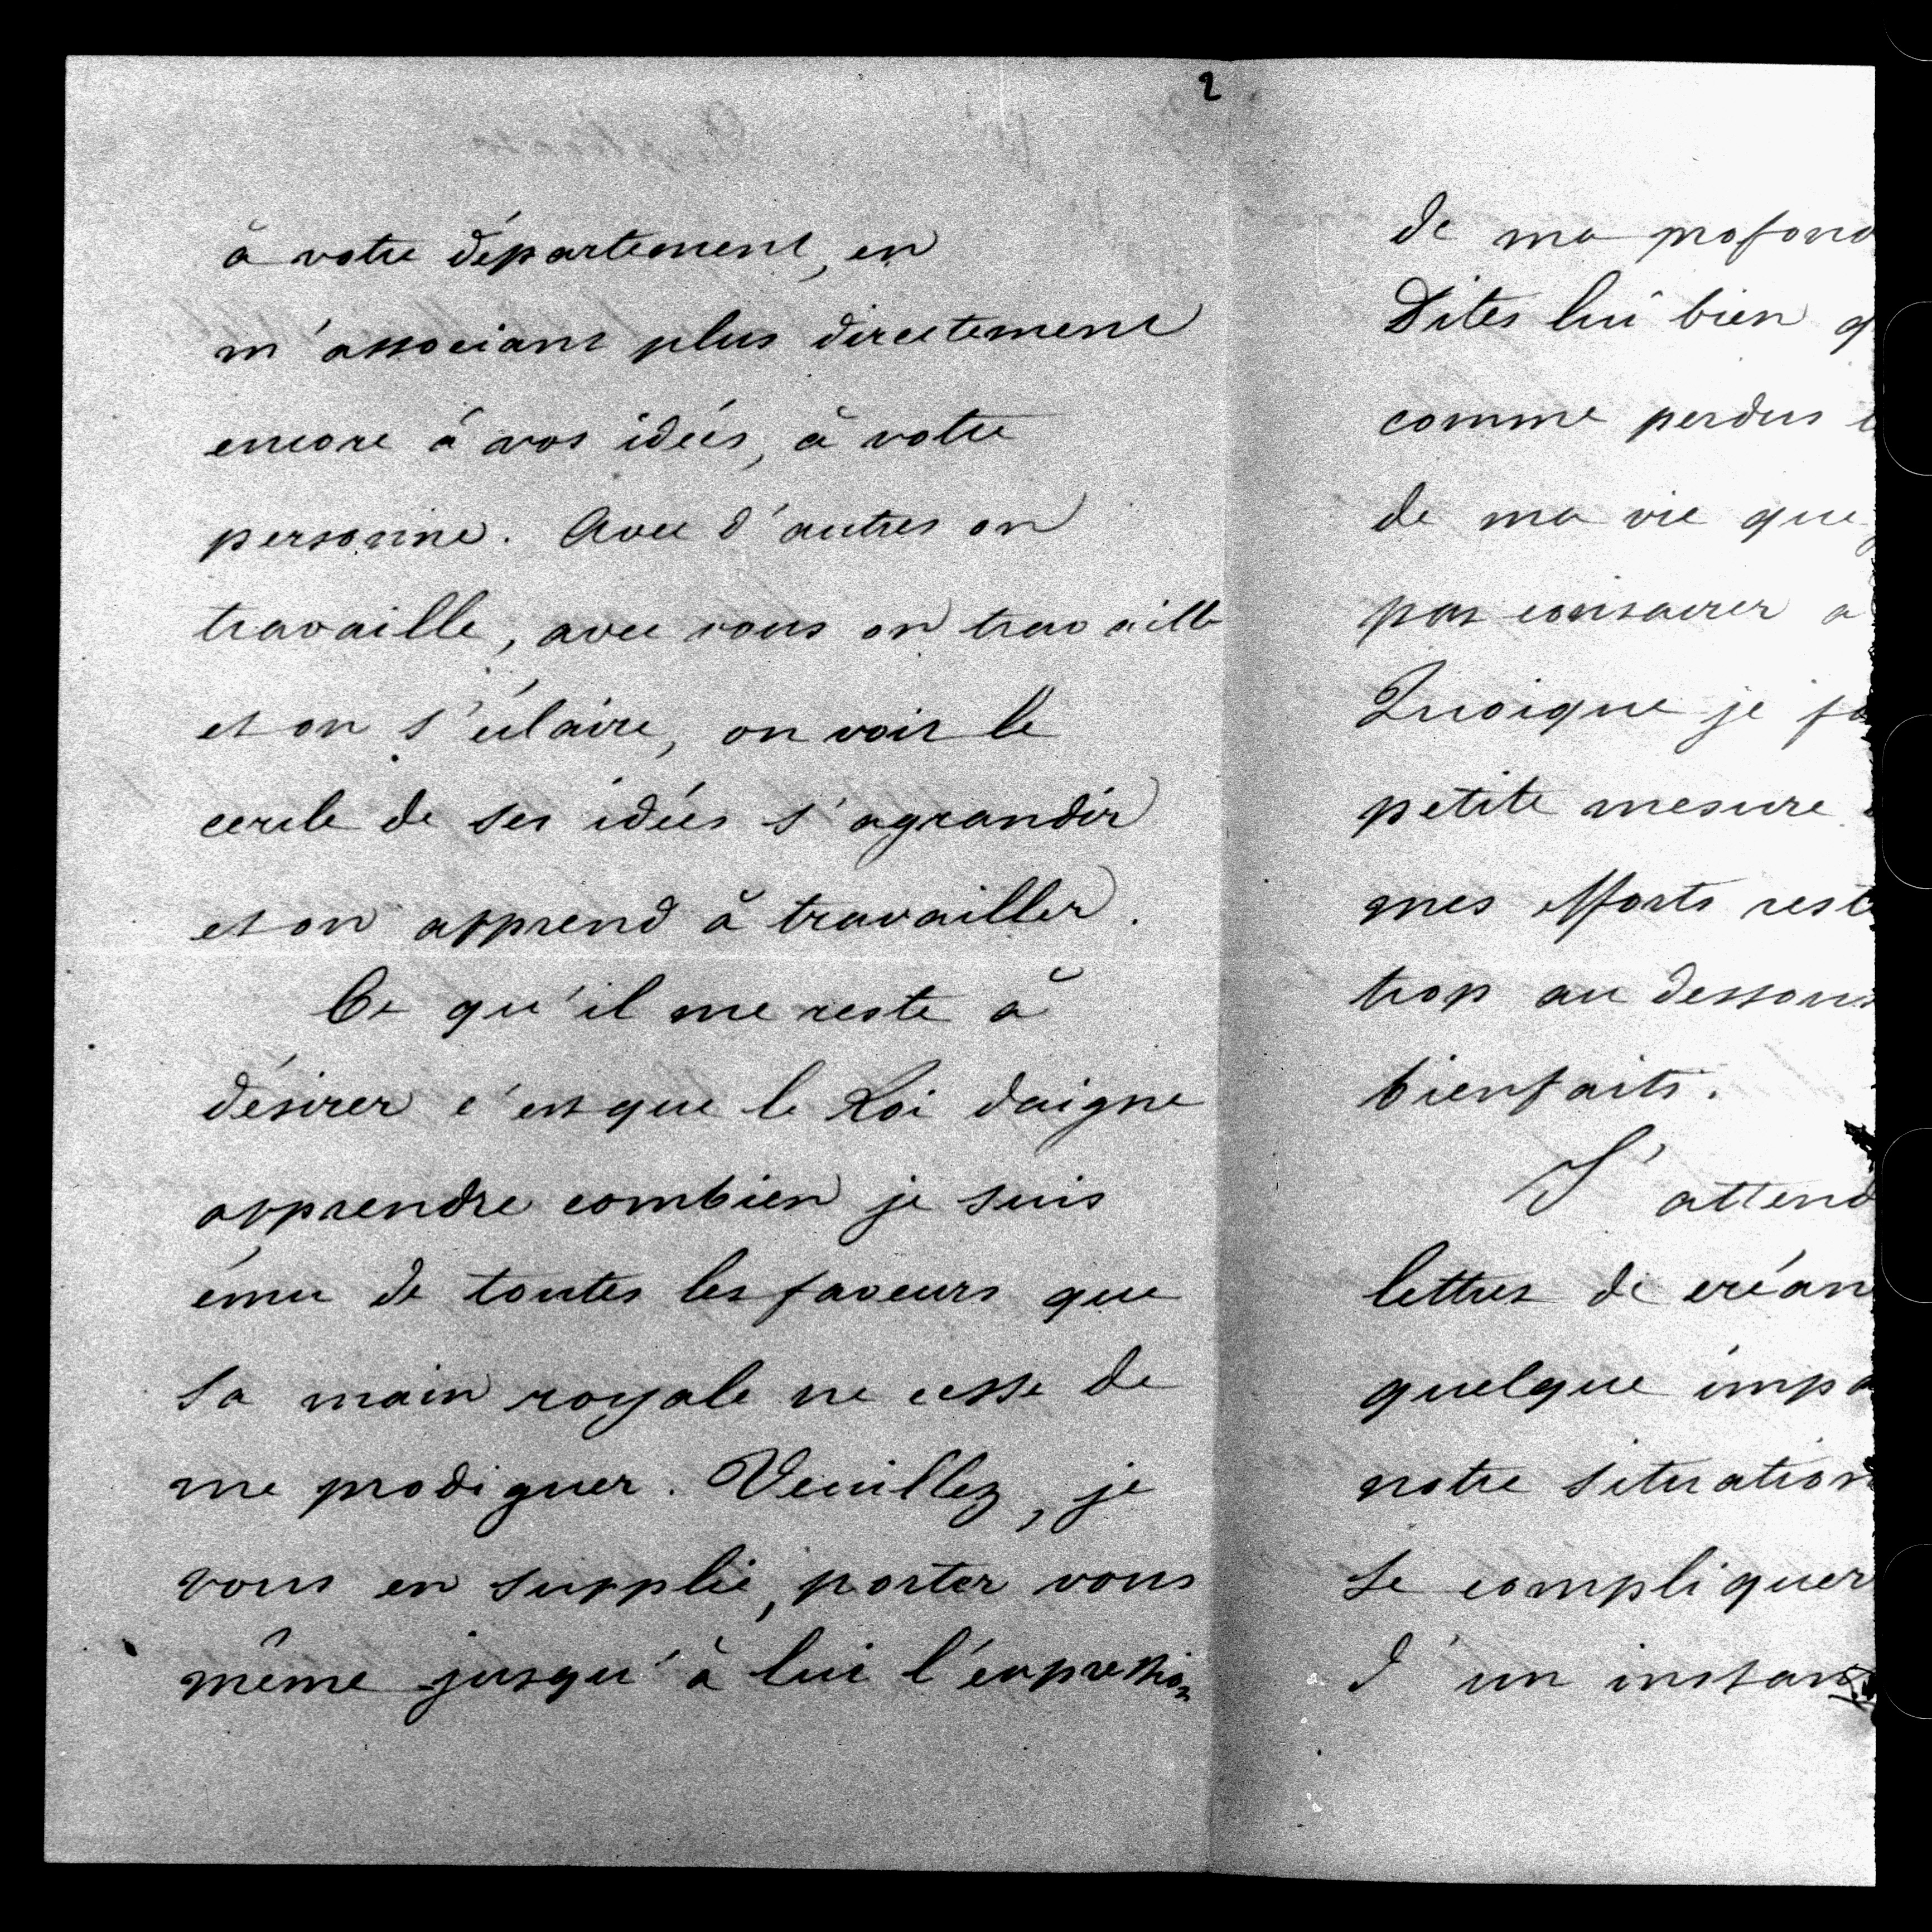 2
à votre département, en
m'associant plus directement
encore à vos idées, à votre
personne. Avec d'autres on
travaille, avec vous on travaille
et on s'éclaire, on voit le
cercle de ses idées s'agrandir
et on apprend à travailler.
Ce qu'il me reste à
désirer c'est que le Roi daigne
apprendre combien je suis
ému de toutes les faveurs que
sa main royale ne cesse de
me prodiguer. Veuillez, je
vous en supplie, porter vous
même jusqu'à lui l'expression
de ma profond
Dites lui bien q
comme perdus
de ma vie que
pas consacrer a
Quoique je fa
petite mesure
mes efforts rest
trop au dessous
bienfaits.
J'attend
lettres de créan
quelque impa
notre situation
se compliquer
d'un instant